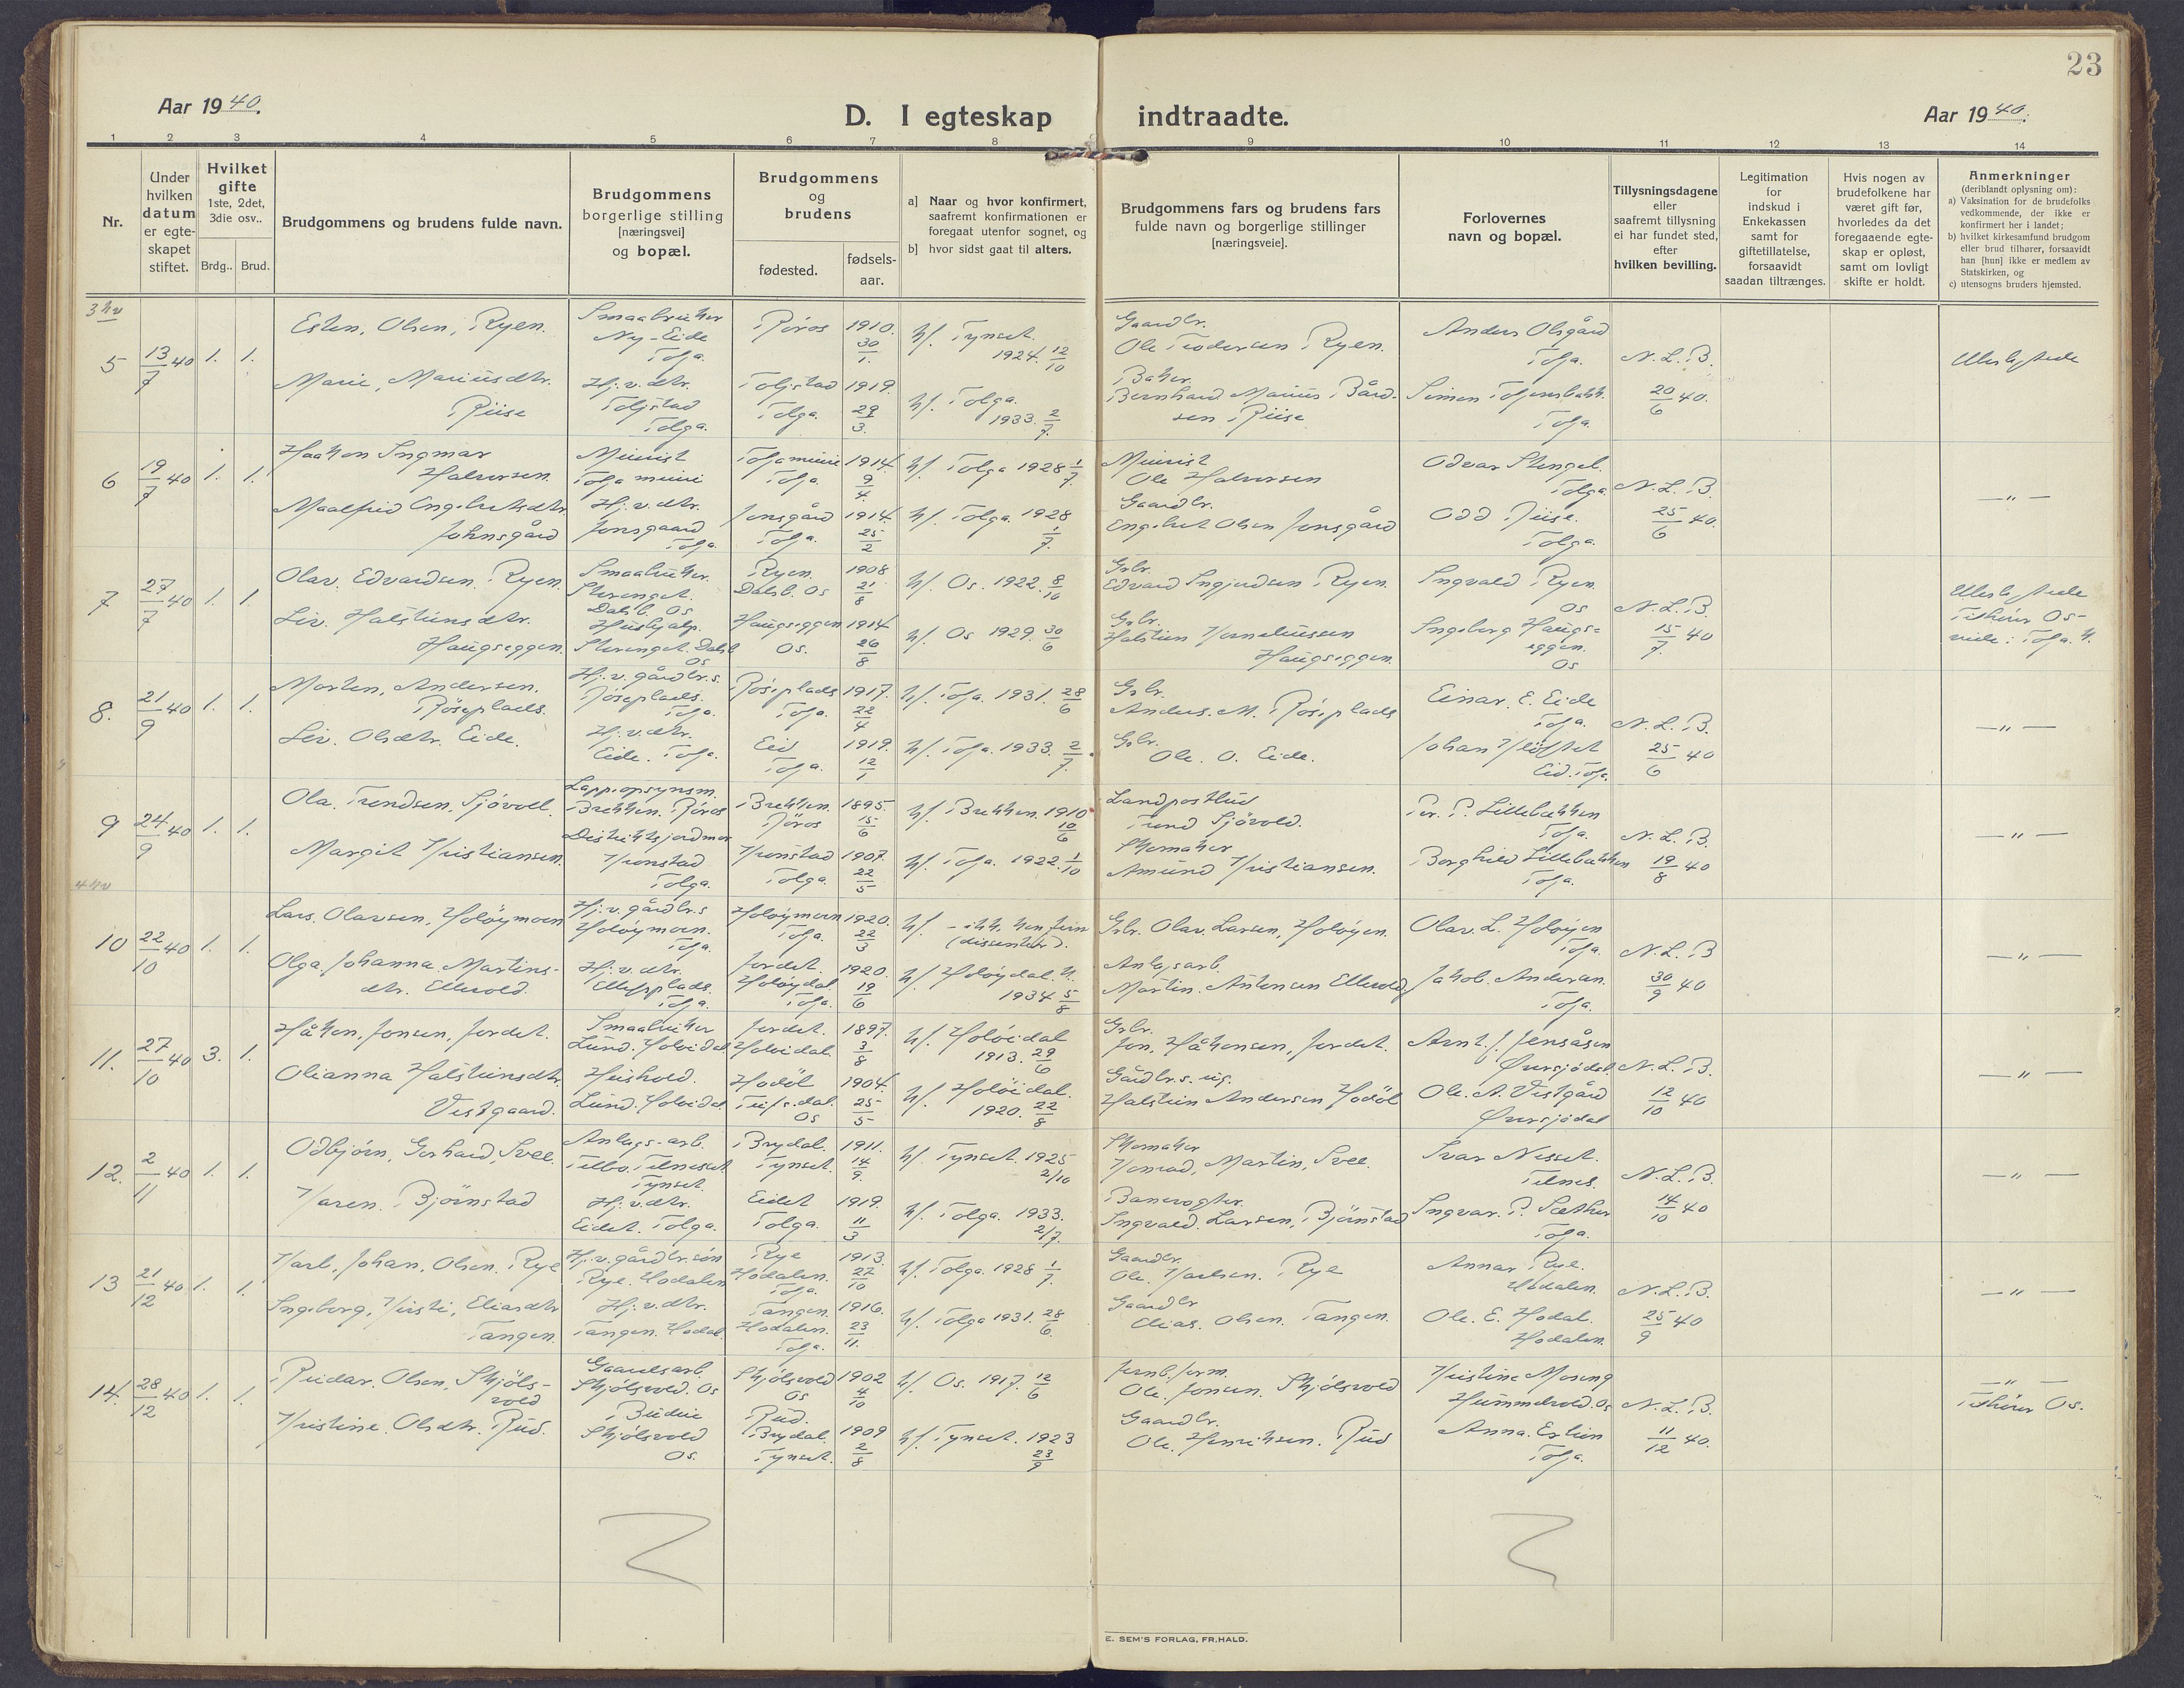 23
Aar 1940.
D. I egteskap indtraadte.
Aar 1940.
1 2 3 4 5 6 7 8 9 10 11 12 13 14
Nr.
Under hvilken datum er egteskapet stiftet.
Hvilket gifte 1ste, 2det, 3die osv..
Brdg.. Brud.
Brudgommens og brudens fulde navn.
Brudgommens borgerlige stilling [næringsvei] og bopæl.
Brudgommens og brudens
fødested.
fødselsaar.
a] Naar og hvor konfirmert, saafremt konfirmationen er foregaat utenfor sognet, og
b] hvor sidst gaat til alters.
Brudgommens fars og brudens fars fulde navn og borgerlige stillinger [næringsveie].
Forlovernes navn og bopæl.
Tillysningsdagene eller saafremt tillysning ei har fundet sted, efter hvilken bevilling.
Legitimation for indskud i Enkekassen samt for giftetillatelse, forsaavidt saadan tiltrænges.
Hvis nogen av brudefolkene har været gift før, hvorledes da det foregaaende egteskap er opløst, samt om lovligt skifte er holdt.
Anmerkninger
(deriblandt oplysning om):
a) Vaksination for de brudefolks vedkommende, der ikke er konfirmert her i landet;
b) hvilket kirkesamfund brudgom eller brud tilhører, forsaavidt han [hun] ikke er medlem av Statskirken, og
c) utensogns bruders hjemsted.
3 kv
5 13/7 40 1. 1.
Esten, Olsen, Ryen. Smaabruker Ny-Eide Tolga. Røros 1910. 30/1. kf. Tynset. 1924. 12/10 Gaardbr. Ole Ryen. Anders Olsgård Tolga. N.L.B. 20/6 40.
Marie, Mariusdtr. Riise Hj.v.dtr. Toljstad Tolga. Toljstad Tolga. 1919. 29/3. kf. Tolga. 1933. 2/7. Baker. Bernhard Marius Bårdsen Riise Simen Tolga.
6 19/7 40 1. 1.
Haakon Ingmar Halvorsen. Tolga Tolga 1914. 9/4. kf. Tolga 1928 1/7. Ole Halvorsen Odvar Stengel. Tolga. N.L.B. 25/6 40.
Maalfrid Engebretsdtr. Johnsgård Hj.v.dtr. Jonsgaard Tolga. Jonsgård Tolga. 1914. 25/2 kf. Tolga. 1928 1/7. Gaardbr. Engebret Olsen Jonsgård Odd Riise. Tolga.
7 27/7 40 1. 1.
Olav. Edvardsen. Ryen. Smaabruker. Dalsb. Os Ryen. Dalsb. Os 1908 21/8 kf. Os. 1922. 8/10 Grbr. Edvard Ryen. Ingvald Ryen. Os N.L.B. 15/7 40
Liv. Halsteinsdtr. Haugseggen. Hushjelp. Os Haugseggen Os. 1914 26/8 kf. Os 1929. 30/6 Grbr. Halstein Korneliussen Haugseggen. Ingeborg Haugseggen. Os
8. 21/9 40 1. 1.
Morten, Andersen. Røseplads. Hj.v.gårdbr.s. Røseplads. Tolga. Røseplads Tolga. 1917. 22/4 kf. Tolga. 1931. 28/6 Grbr. Anders. M. Røseplads Einar. E. Eide Tolga. N.L.B. 25/6 40 — " —
Liv. Olsdtr. Eide. Hj.v.dtr. Eide. Tolga. Eid Tolga. 1919. 12/1 kf. Tolga. 1933. 2/7. Grbr. Ole. O. Eide. Johan Kløftet Eid. Tolga
9 24/9 40 1. 1.
Ola. Trondsen. Sjövold. Lappopsynsm. Brekken. Røros Brekken. Røros 1895. 15/6 kf. Brekken. 1910 10/6 Landpostbud Trond Sjövold. Per. P. Lillebakken Tolga. N.L.B. 19/8 40 — " —
Margit Kristiansen. Distriktsjordmor Kronstad Tolga. Kronstad Tolga. 1907. 22/5 kf. Tolga. 1922. 1/10 Skomaker Amund Kristiansen. Borghild Lillebakken Tolga.
4 kv
10 22/10 40 1. 1.
Lars. Olavsen, Holøymoen Hj.v.gårdbr.s Holøymoen. Tolga. Holøymoen Tolga. 1920. 22/3 kf. - ikke konfirm (dissenter). Grbr. Olav. Larsen, Holøyen. Olav. L. Holøyen Tolga. N.L.B 30/9 40 — " —
Olga, Johanna, Martinsdtr. Ellevold. Hj.v.dtr. Tolga. Jordet. Holøydal Tolga. 1920. 19/6 kf. Holøydal. K. 1934 5/8 Anlegsarb. Martin. Antonsen Ellevold. Jakob. Andersen. Tolga.
11. 27/10 40 3. 1.
Håkon, Jonsen, Jordet. Smaabruker Lund. Holøidal Jordet. Holøidal. 1897. 3/8 kf. Holøidal 1913. 29/6 Grbr. Jon, Håkonsen, Jordet. Arnt. J. Jensåsen Øversjødal. N.L.B. 12/10 40 — " —
Olianna Halsteinsdtr. Vestgaard. Hushold. Lund. Holøidal Hodøl Os 1904. 25/5 kf. Holøidal. 1920. 22/8 Halstein Andersen Hodøl Ole. A. Vestgård Øversjødal
12. 2/11 40 1. 1.
Odbjørn, Gerhard, Svee. Anlegs-arb. Tynset. Brydal. Tynset. 1911. 14/9. kf. Tynset. 1925 2/10 Skomaker Konrad, Martin, Svee. Ivar Nesset. Telnes. N.L.B. 14/10 40 — " —
Karen. Bjørnstad Hj.v.dtr. Eidet. Tolga. Eidet Tolga. 1919. 11/3 kf. Tolga. 1933. 2/7. Banevogter. Ingvald. Larsen, Bjørnstad Ingvar. P. Sæther Tolga.
13 21/12 40 1. 1.
Karl, Johan, Olsen. Rye Hj.v.gårdbr.søn Rye. Hodalen Rye Hodalen. Tolga. 1913. 27/10 kf. Tolga. 1928 1/7. Gaardbr. Ole. Karlsen. Rye Annar Rye. Hodalen. N.L.B. 25/9 40 — " —
Ingeborg, Kirsti, Eliasdtr Tangen. Hj.v.dtr. Tangen. Hodal. Tangen. Hodalen. Tolga. 1916. 23/11. kf. Tolga 1931. 28/6. Gaardbr Elias. Olsen. Tangen. Ole. E. Hodal. Hodalen.
14. 28/12 40 1. 1.
Reidar. Olsen, Skjölsvold Gaardsarb. Skjölsvold. Os Skjölsvold Os 1902 4/10 kf. Os. 1917. 12/6 Ole. Jonsen. Skjölsvold Kristine Moseng Hummelvold. Os N.L.B. 11/12 40. — " — Os.
Kristine. Olsdtr. Rud. Budeie Skjölsvold Os. Rud. Brydal. Tynset. 1909 2/8 kf. Tynset. 1923 23/9 Gaardbr. Ole. Henriksen. Rud Anna. Estien Tolga.
E. SEM'S FORLAG, FR.HALD.